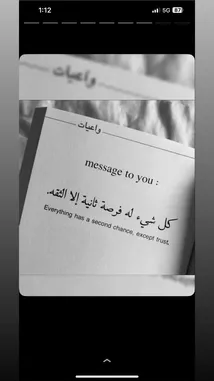 1:12
5G 67
واعيات
واعيات
message to you :
كل شيء له فرصة ثانية إلا الثقه.
Everything has a second chance, except trust.